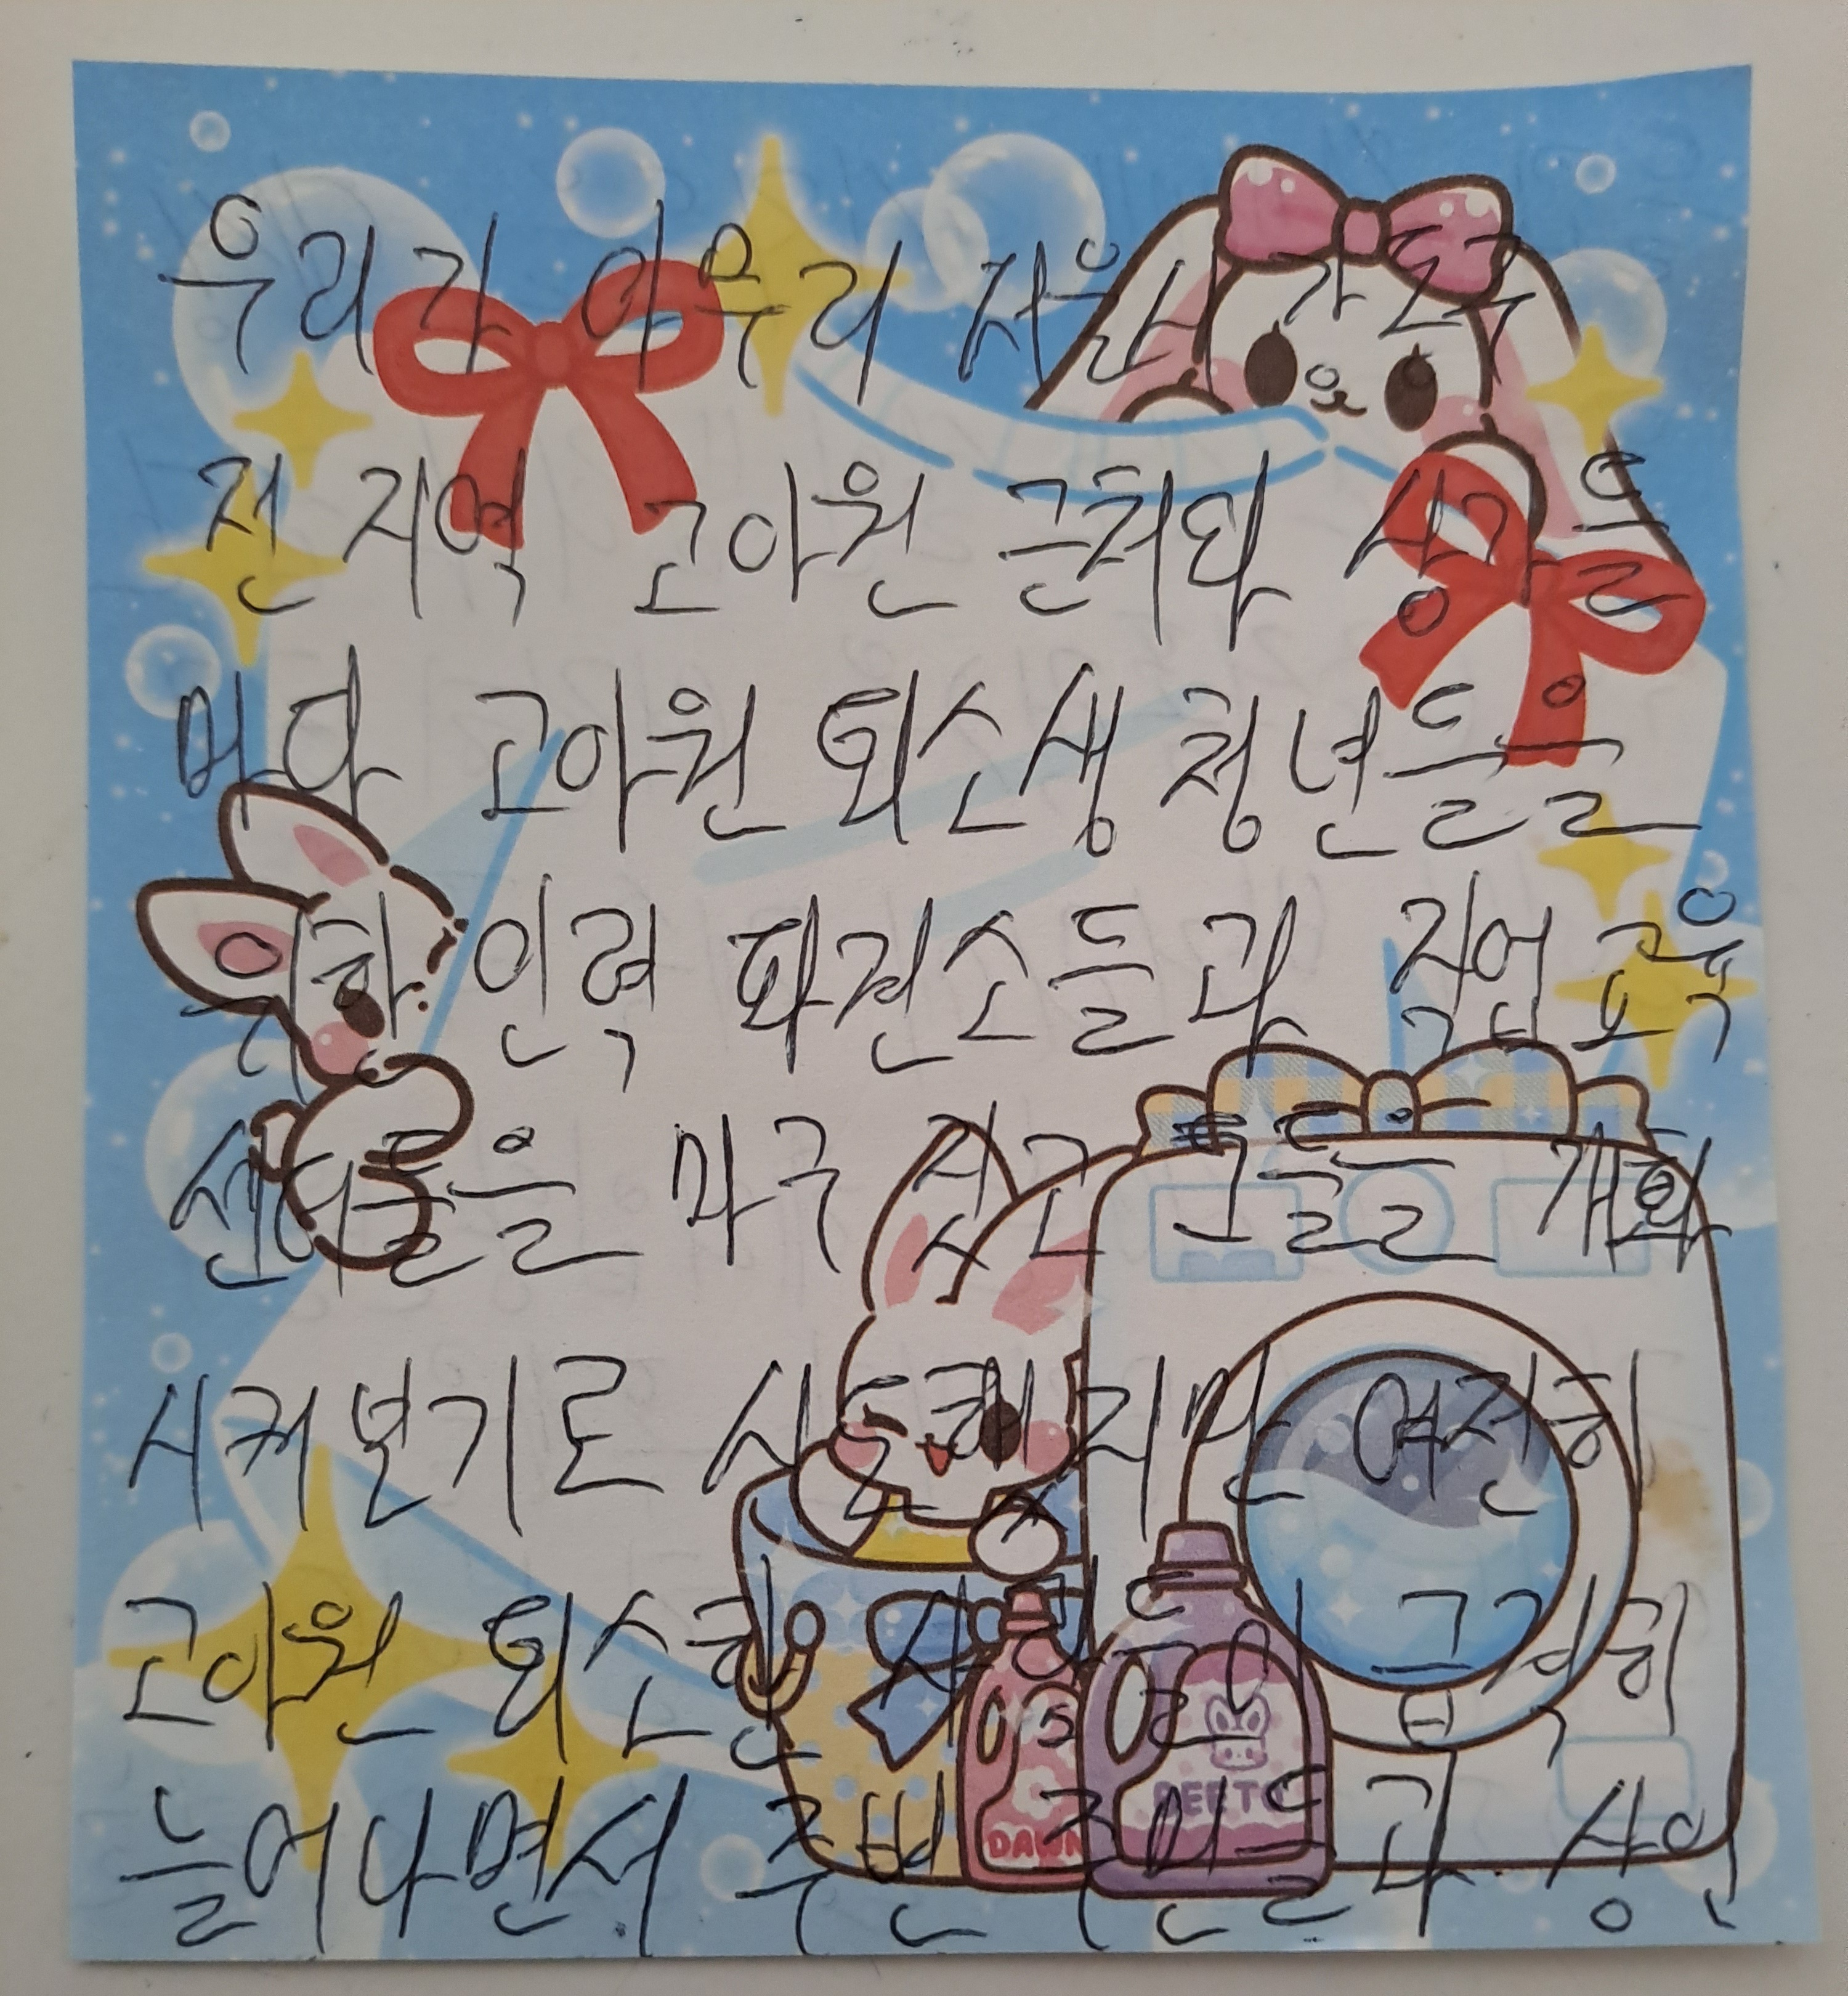 우리가 아무리 저희가 전국
전 지역 고아원 근처와 상가들
마다 고아원 퇴소생 청년들을
위한 인력 파견소들과 직업 교육
센터들을 마구 짓고 그들을 개화
시켜보기로 시도해지만 여전히
고아원 퇴소한 사람들이 급격히
늘어나면서 주변 주민들과 상인
DAWN
BEETO